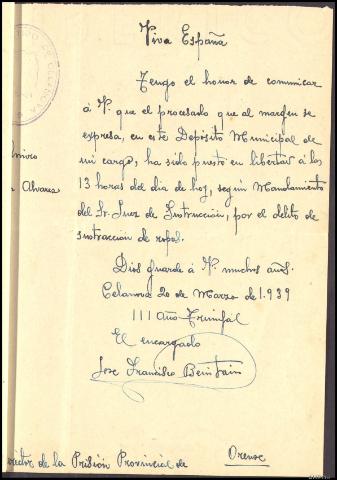 Viva España
Tengo el honor de comunicar
á V. que el procesado que al margen se
expresa, en este Depósito Municipal de
mi cargo, ha sido puesto en libertad á las
13 horas del dia de hoy, según Mandamiento
del Sr. Juez de Instrucción, por el delito de
sustracción de ropas.
Dios guarde á V. muchos años.
Celanova 20 de Marzo de 1.939
III Año Triunfal
El encargado
Jose Francisco
Alvares
Director de la Prisión Provincial de Orense